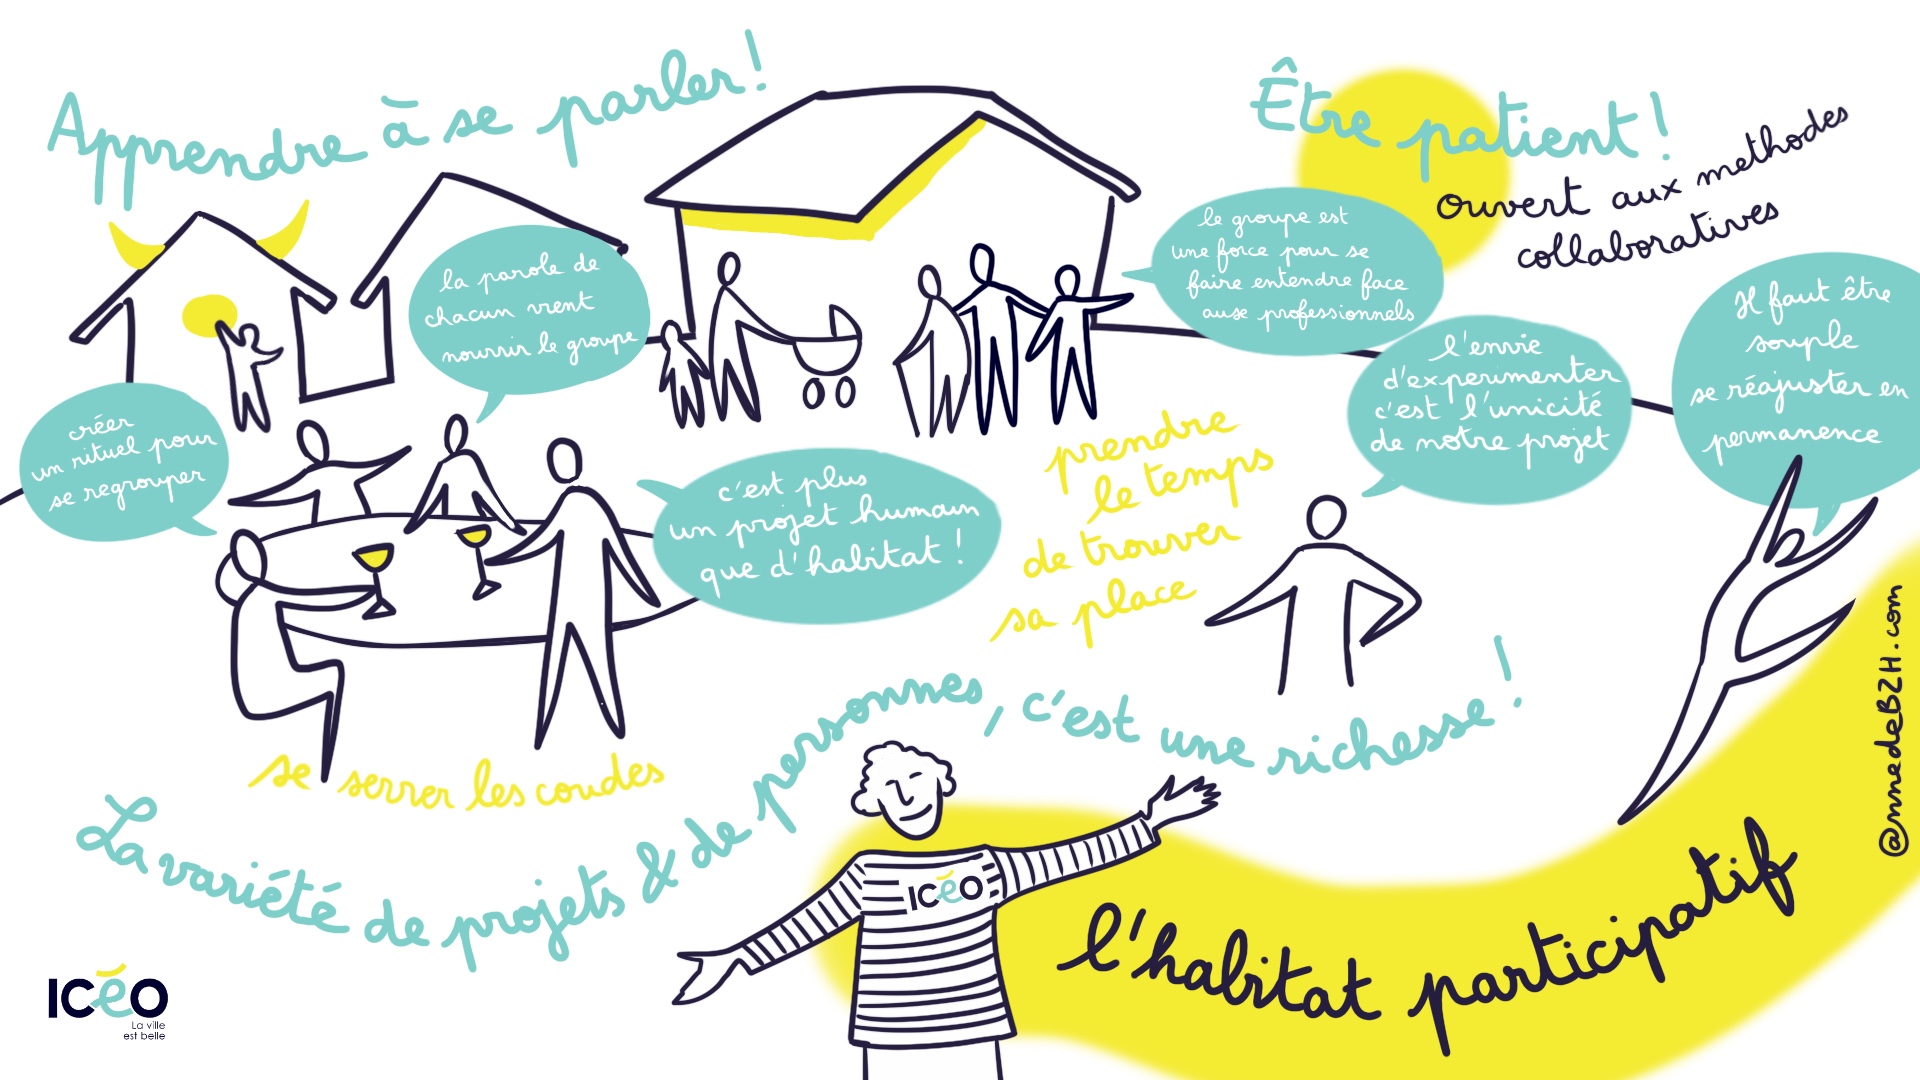 Apprendre à se parler !
Être patient !
ouvert aux methodes
collaboratives
la parole de
chacun vient
nourrir le groupe
le groupe est
une force pour se
faire entendre face
aux professionnels
Il faut être
souple
se réajuster en
permanence
l'envie
d'experimenter
c'est l'unicité
de notre projet
créer
un rituel pour
se regrouper
c'est plus
un projet humain
que d'habitat !
prendre
le temps
de trouver
sa place
se serrer les coudes
La variété de projets & de personnes, c'est une richesse !
ICéO
l'habitat participatif
@nnedeBZH.com
ICéO
La ville
est belle